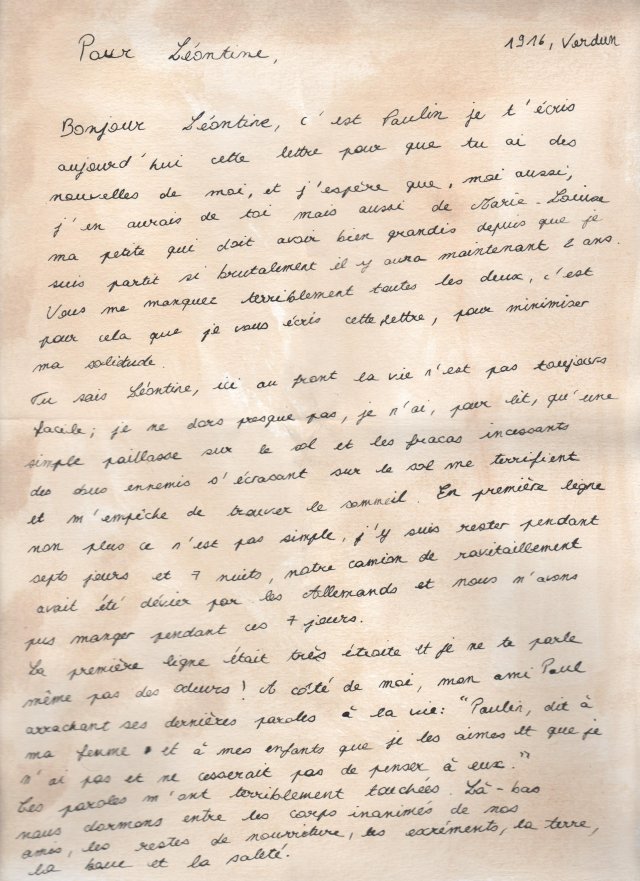 Pour Léontine,
1916, Verdun
Bonjour Léontine, c'est Paulin je t'écris
aujourd'hui cette lettre pour que tu ai des
nouvelles de moi, et j'espère que, moi aussi,
j'en aurais de toi mais aussi de Marie-Louise
ma petite qui doit avoir bien grandis depuis que je
suis partit si brutalement il y aura maintenant 2 ans.
Vous me manquez terriblement toutes les deux, c'est
pour cela que je vous écris cette lettre, pour minimiser
ma solitude.
Tu sais Léontine, ici au front la vie n'est pas toujours
facile; je ne dors presque pas, je n'ai, pour lit, qu'une
simple paillasse sur le sol et les fracas incessants
des obus ennemis s'écrasant sur le sol me terrifient
et m'empêche de trouver le sommeil. En première ligne
non plus ce n'est pas simple, j'y suis rester pendant
septs jours et 7 nuits, notre camion de ravitaillement
avait été dévier par les Allemands et nous n'avons
pus manger pendant ces 7 jours.
La première ligne était très étroite et je ne te parle
même pas des odeurs! A côté de moi, mon ami Paul
arrachant ses dernières paroles à la vie: "Paulin, dit à
ma femme et à mes enfants que je les aimes et que je
n'ai pas et ne cesserait pas de penser à eux."
Ces paroles m'ont terriblement touchées. Là-bas
nous dormons entre les corps inanimés de nos
amis, les restes de nourriture, les exréments, la terre,
la boue et la saleté.